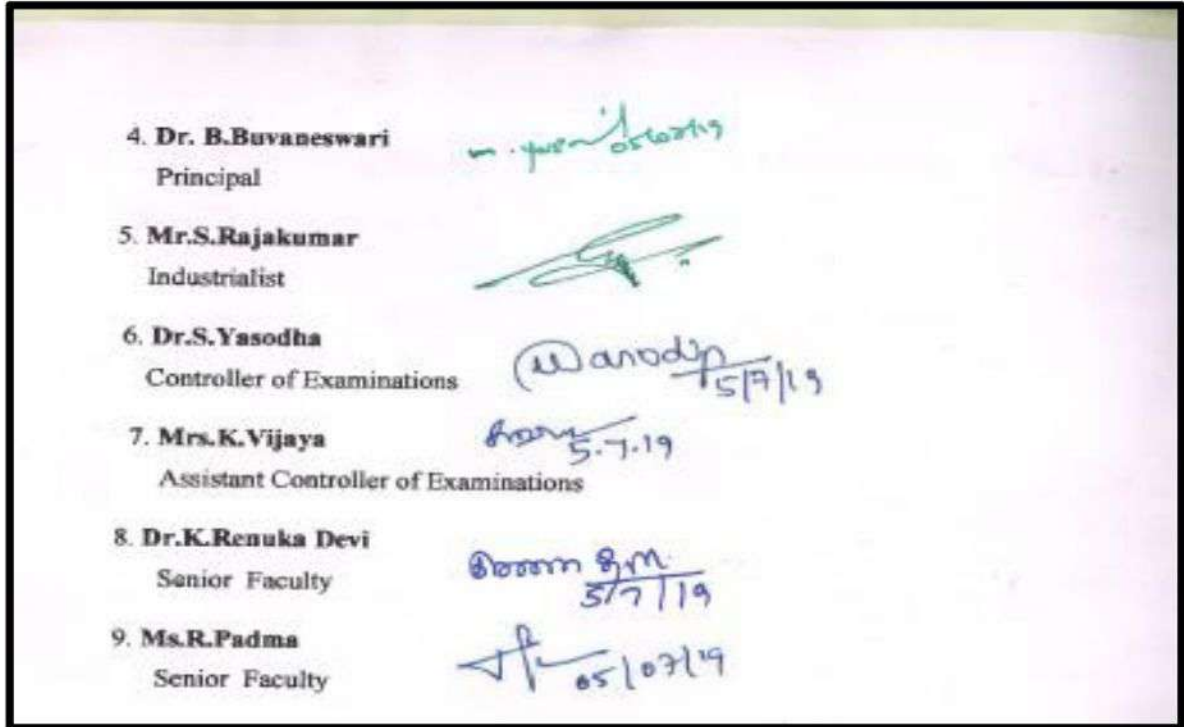 4. Dr. B.Buvaneswari
05/07/19
Principal
5. Mr.S.Rajakumar
Industrialist
6. Dr.S.Yasodha
5/7/19
Controller of Examinations
7. Mrs.K.Vijaya
5.7.19
Assistant Controller of Examinations
8. Dr.K.Renuka Devi
Senior Faculty
5/7/19
9. Ms.R.Padma
05/07/19
Senior Faculty